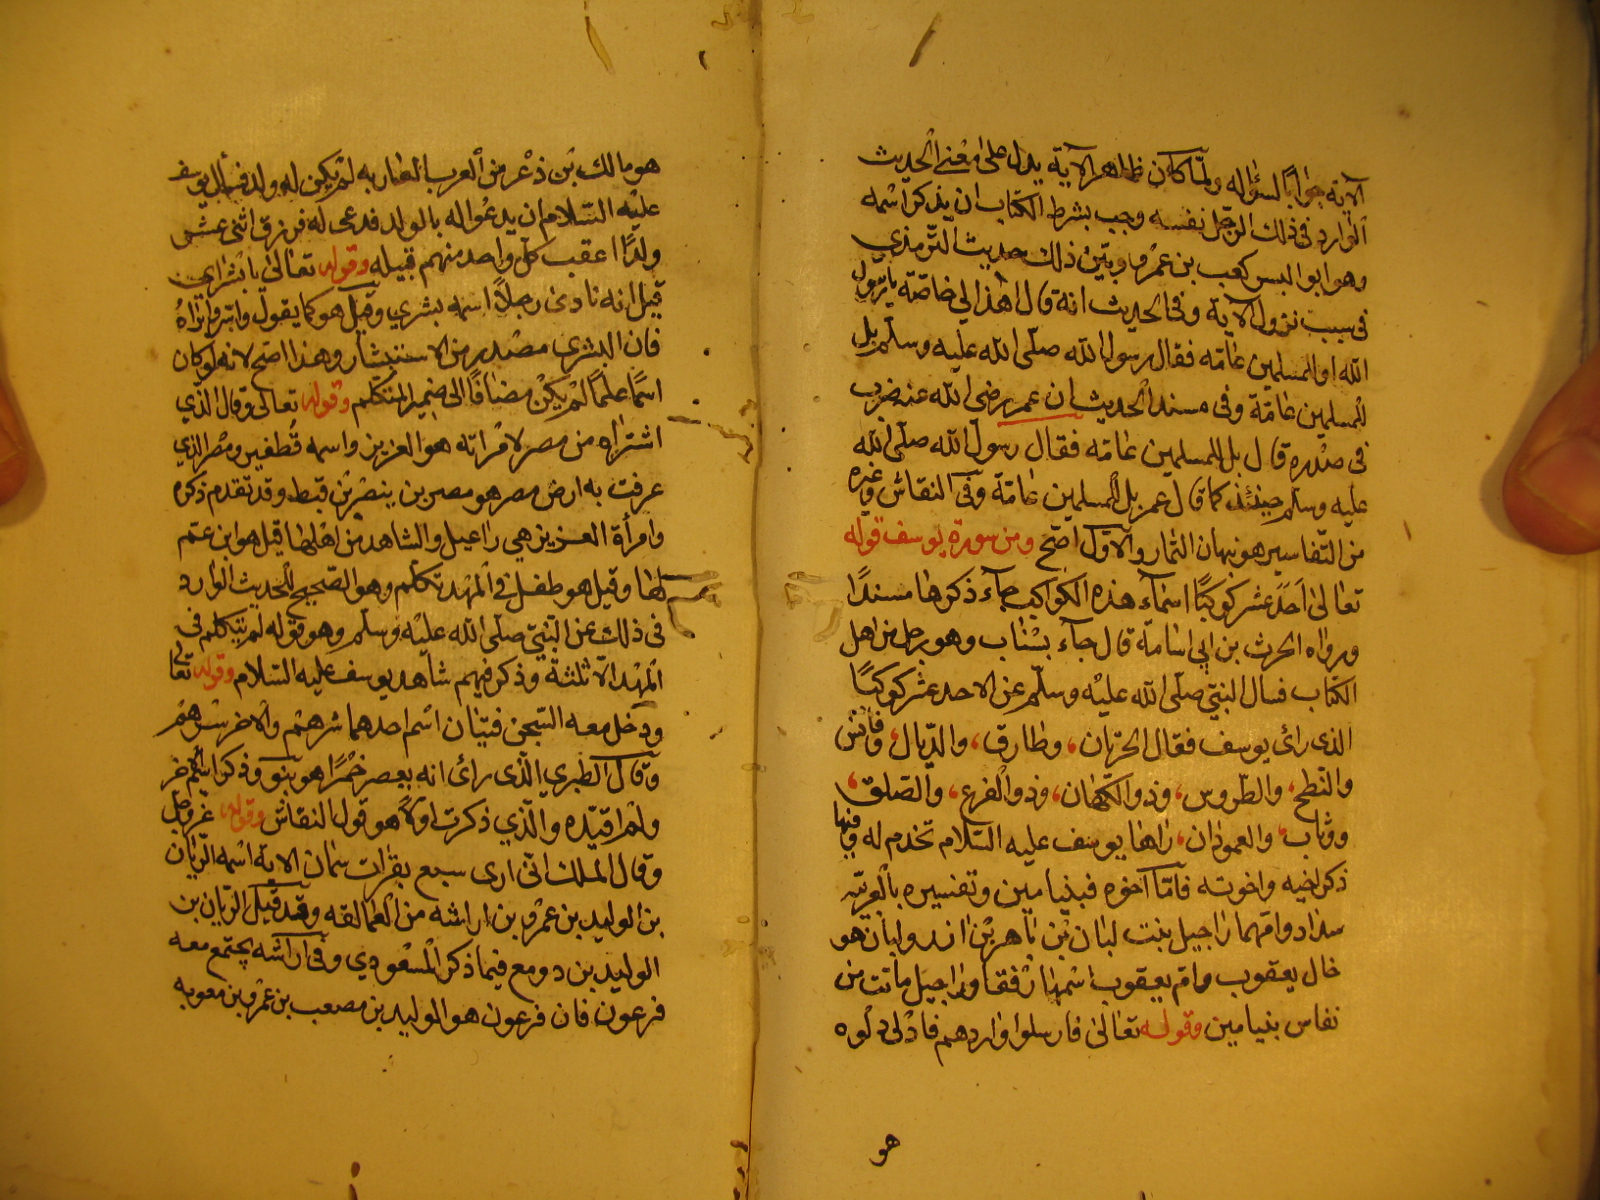 الآية جوابًا لسؤاله ولمّا كان ظاهر الآية يدل على معنى الحديث
الوارد فى ذلك الرجل نفسه وجب بشرط الكتاب ان يذكر اسمه
وهو ابو اليسر كعب بن عمرو وبيّن ذلك حديث الترمذي
فى سبب نزول الآية وفى الحديث انه قال اهذا لي خاصّة يا رسول
الله او للمسلمين عامّه فقال رسول الله صلّى الله عليه وسلّم بل
للمسلمين عامّة وفى مسند الحديث ان عمر رضى الله عنه ضرب
فى صدره قال بل للمسلمين عامّه فقال رسول الله صلّى الله
عليه وسلّم حينئذ كما قال عمر بل للمسلمين عامّة وفى النقاش وغيره
من التّفاسير هو نبهان التمار والاوّل اصحّ ومن سورة يوسف قوله
تعالى احد عشر كوكبًا اسماء هذه الكواكب جاء ذكرها مسندًا
ورواه الحرث بن ابي اسامة قال جاء بستاب وهو رجل من اهل
الكتاب فسال النبيّ صلّى الله عليه وسلّم عن الاحد عشر كوكبًا
الذى راى يوسف فقال الحرثان، وطارق، والذّيال، وقابس
والنّطح، والطّروس، وذو الكتفان، وذو الفرع، والصّلق،
ووثاب، والعمودان، راها يوسف عليه السّلام تخدم له وفيها
ذكر اخيه واخوته فامّا اخوه فبنيامين وتفسيره بالعربيّه
سداد وامّهما راجيل بنت لبان بن باهر بن ازر ولبان هو
خال يعقوب وام يعقوب اسمها رفقا وراجيل ماتت من
نفاس بنيامين وقوله تعالى فارسلوا واردهم فادلى دلوه
هو
هو مالك بن ذعر من العرب العاربه لم يكن له ولد فسال يوسف
عليه السّلام ان يدعو له بالولد فدعى له فرزق اثنى عشر
ولدًا اعقب كل واحد منهم قبيله وقوله تعالى يا بشراى
قيل انه نادى رجلاً اسمه بشري وقيل هو كما يقول واسروراه
فان البشري مصدر من الاستبشار وهذا اصح لانه لو كان
اسمًا علمًا لم يكن مضافًا الى ضمير المتكلم وقوله تعالى وقال الّذي
اشتراه من مصر لامراته هو العزيز واسمه قطفير ومصر الذي
عرفت به ارض مصر هو مصر بن ينصر بن قبط وقد تقدم ذكره
وامرأة العزيز هي راعيل والشاهد من اهلها قيل هو ابن عم
لها وقيل هو طفل فى المهد تكلّم وهو الصّحيح للحديث الوارد
فى ذلك عن النّبيّ صلّى الله عليه وسلّم وهو قوله لم يتكلم فى
المهد الّا ثلثة وذكر فيهم شاهد يوسف عليه السّلام وقوله تعالى
ودخل معه السّجن فتيان اسم احدهما شرهم والاخر شرهم
وقال الطبري الّذى راى انه يعصر خمرًا هو بنو وذكر اسم الاخر
ولم اقيّده والّذي ذكرت اولاً هو قول النقاش وقوله عز وجل
وقال الملك انّى ارى سبع بقرات سمان الاية اسمه الرّيان
بن الوليد بن عمرو بن اراشه من العمالقه وقد قيل الرّيان بن
الوليد بن دومع فيما ذكر المسعودي وفى اراشه يجتمع معه
فرعون فان فرعون هو الوليد بن مصعب بن عمرو بن معويه